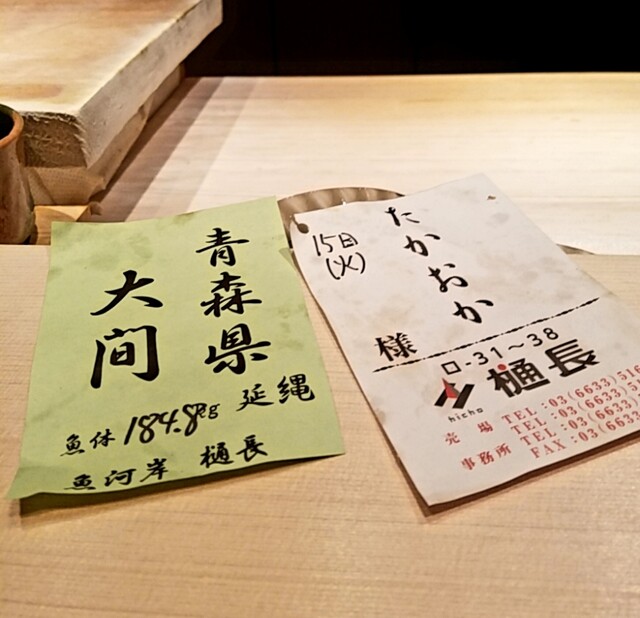 青森県
大間
延縄
魚体 184.8kg
魚河岸 樋長
15日
(火)
たかおか
様
ロ-31～38
樋長
hicho
売場 TEL:03(6633)516
TEL:03(6633)
事務所 TEL:03(6633)
FAX:03(663